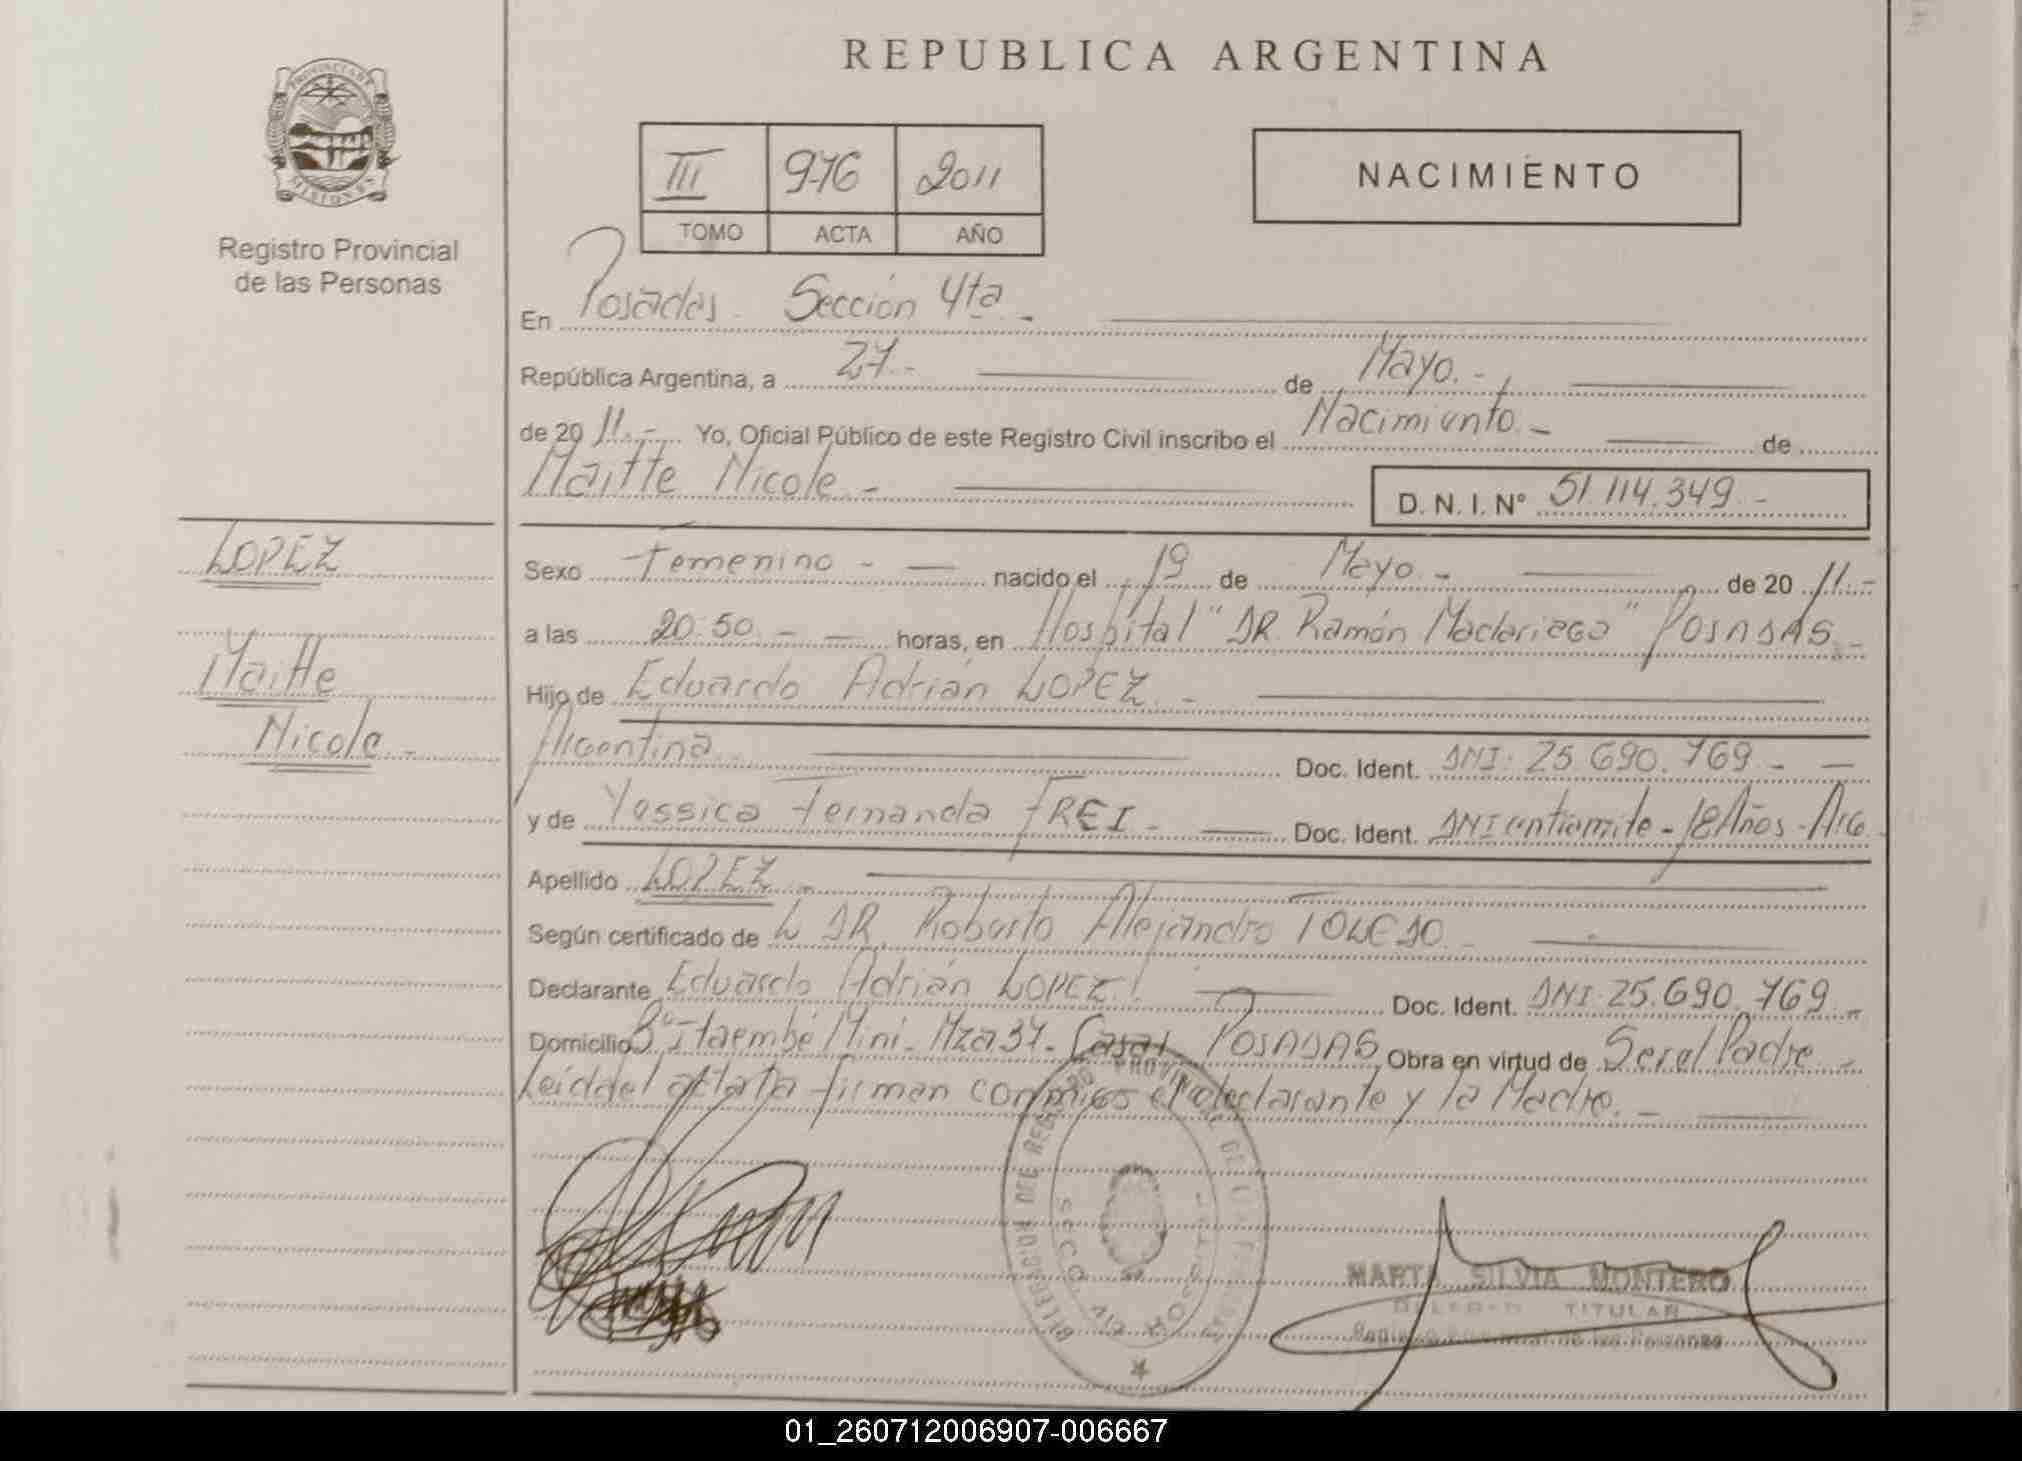 REPUBLICA ARGENTINA
PROVINCIA DE
MISIONES
Registro Provincial
de las Personas
III 976 2011
TOMO ACTA AÑO
NACIMIENTO
En Posadas Sección 4ta.-
República Argentina, a 27.- de Mayo.-
de 20 11.- Yo, Oficial Público de este Registro Civil inscribo el Nacimiento.- de
Maitte Nicole.- D. N. I. Nº 51.114.349.-
LOPEZ
Maitte
Nicole.-
Sexo Femenino.- nacido el 19 de Mayo.- de 20 11.-
a las 20:50.- horas, en Hospital "DR. Ramón Madariaga" POSADAS.-
Hijo de Eduardo Adrián LOPEZ.-
Argentina.- Doc. Ident. DNI: 25.690.769.-
y de Yessica Fernanda FREI.- Doc. Ident. DNI en tramite - 18 Años - Arg.
Apellido LOPEZ.-
Según certificado de DR. Roberto Alejandro TOLEDO.-
Declarante Eduardo Adrián LOPEZ Doc. Ident. DNI: 25.690.769.-
Domicilio Bº Itaembé Mini - Mza 37 - Casa 1 POSADAS Obra en virtud de Ser el Padre.-
Leida el acta firman conmigo el declarante y la Madre.-
DELEGACION DEL REGISTRO PROVINCIAL DE LAS PERSONAS
SECC.
MARTA SILVIA MONTERO
TITULAR
Registro Provincial de las Personas
01_260712006907-006667